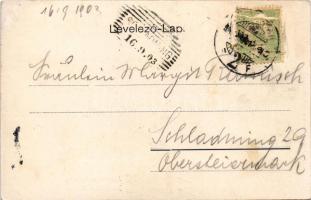 16/9 1903
Levelező-Lap.
16.9.03
Fräulein Margit
Schladming 29
Obersteiermark